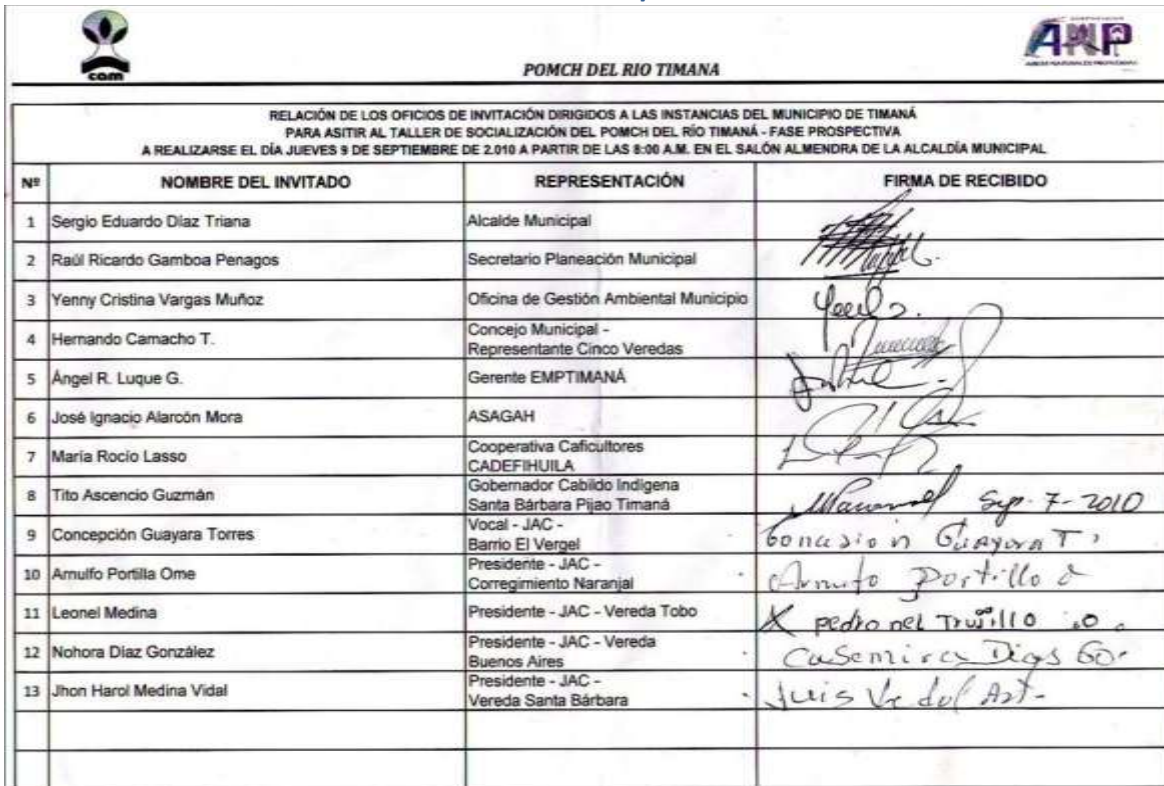 cam
POMCH DEL RIO TIMANA
ANP
RELACIÓN DE LOS OFICIOS DE INVITACIÓN DIRIGIDOS A LAS INSTANCIAS DEL MUNICIPIO DE TIMANÁ
PARA ASITIR AL TALLER DE SOCIALIZACIÓN DEL POMCH DEL RÍO TIMANÁ - FASE PROSPECTIVA
A REALIZARSE EL DÍA JUEVES 9 DE SEPTIEMBRE DE 2.010 A PARTIR DE LAS 8:00 A.M. EN EL SALÓN ALMENDRA DE LA ALCALDÍA MUNICIPAL
Nº NOMBRE DEL INVITADO REPRESENTACIÓN FIRMA DE RECIBIDO
1 Sergio Eduardo Díaz Triana Alcalde Municipal
2 Raúl Ricardo Gamboa Penagos Secretario Planeación Municipal
3 Yenny Cristina Vargas Muñoz Oficina de Gestión Ambiental Municipio
4 Hernando Camacho T. Concejo Municipal -
Representante Cinco Veredas
5 Ángel R. Luque G. Gerente EMPTIMANÁ
6 José Ignacio Alarcón Mora ASAGAH
7 María Rocío Lasso Cooperativa Caficultores
CADEFIHUILA
8 Tito Ascencio Guzmán Gobernador Cabildo Indígena
Santa Bárbara Pijao Timaná Sep. 7-2010
9 Concepción Guayara Torres Vocal - JAC -
Barrio El Vergel Guayara T.
10 Arnulfo Portilla Ome Presidente - JAC -
Corregimiento Naranjal Portillo
11 Leonel Medina Presidente - JAC - Vereda Tobo X pedro nel Trujillo
12 Nohora Díaz González Presidente - JAC - Vereda
Buenos Aires Casemira Dias Go.
13 Jhon Harol Medina Vidal Presidente - JAC -
Vereda Santa Bárbara